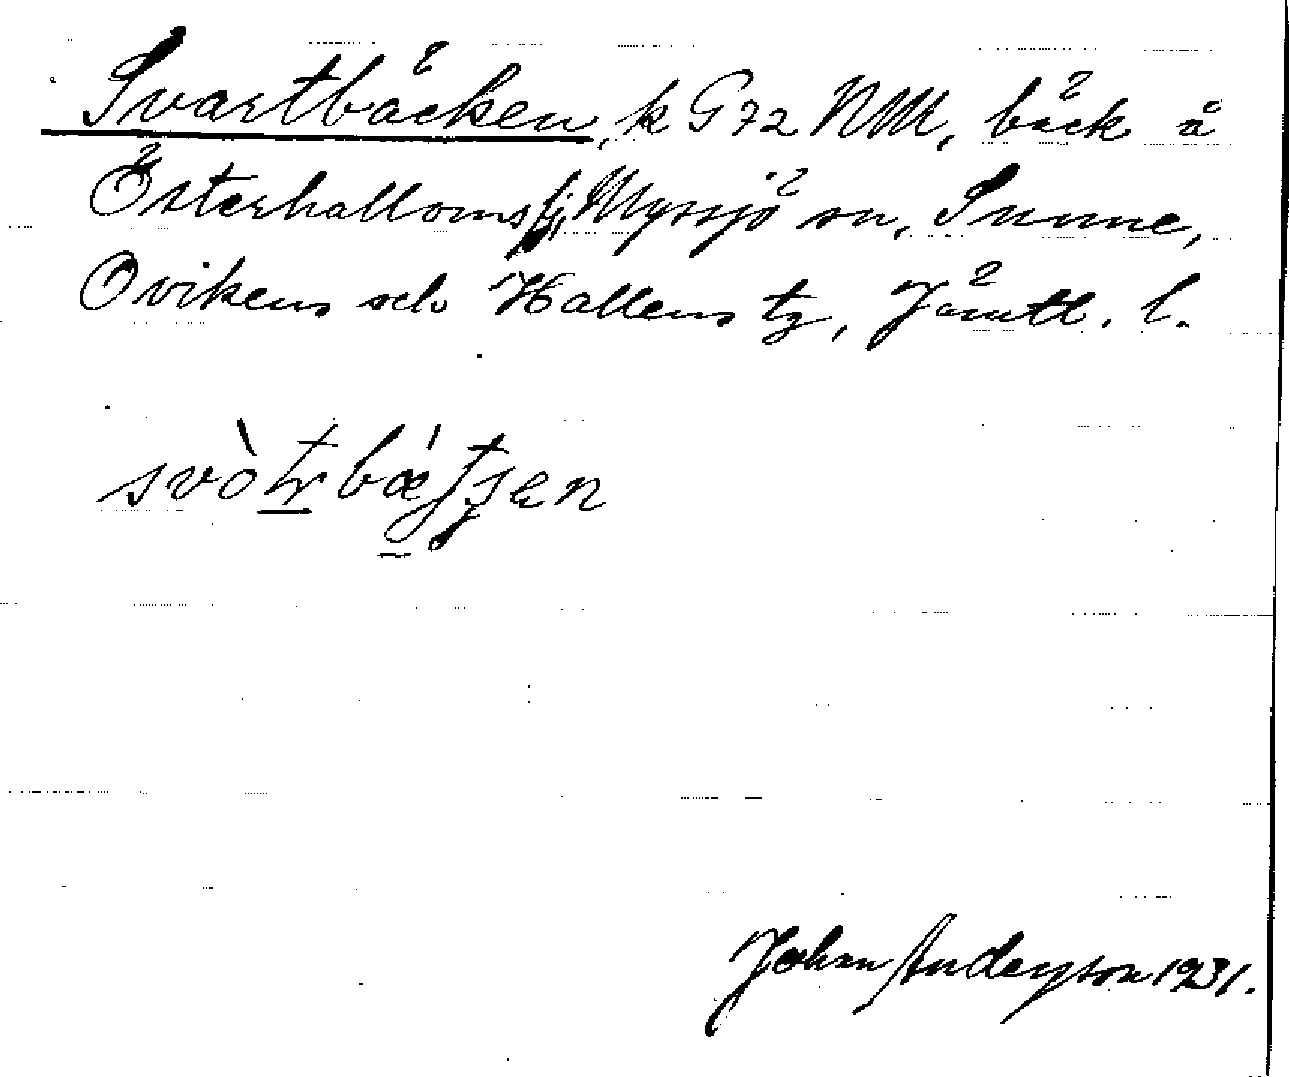 Svartbäcken, k G 72 NM, bäck å
Österhalloms fj, Myssjö sn, Sunne,
Ovikens och Hallens tg, Jämtl. l.
John Anderson 1931.